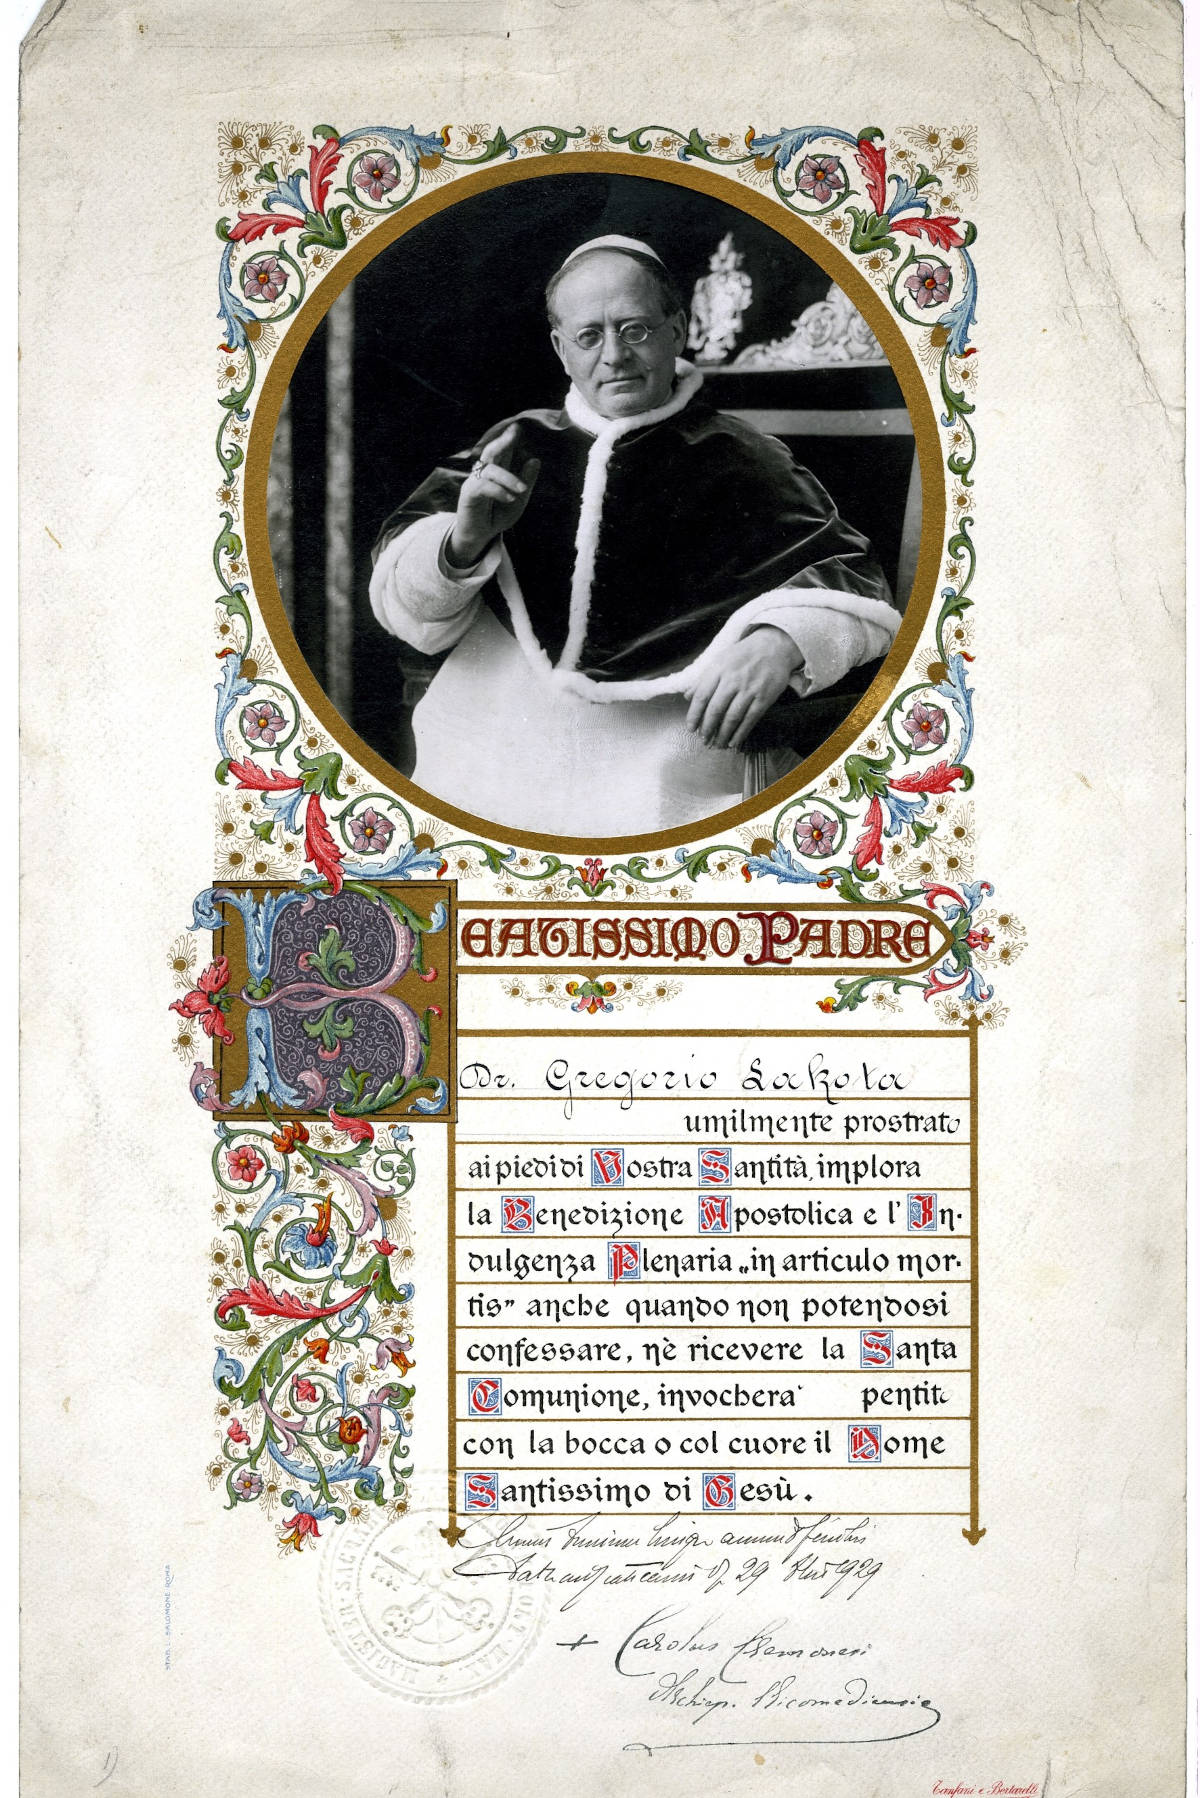 BEATISSIMO PADRE
Dr. Gregorio Lakota
umilmente prostrato
ai piedi di Vostra Santità, implora
la Benedizione Apostolica e l' In-
dulgenza Plenaria „in articulo mor-
tis” anche quando non potendosi
confessare, nè ricevere la Santa
Comunione, invocherà pentito
con la bocca o col cuore il Nome
Santissimo di Gesù.
29 1929
+ Carolus Cremonesi
Archiep. Nicomediensis
STAB. L. SALOMONE ROMA
1)
Tanfani e Bertarelli